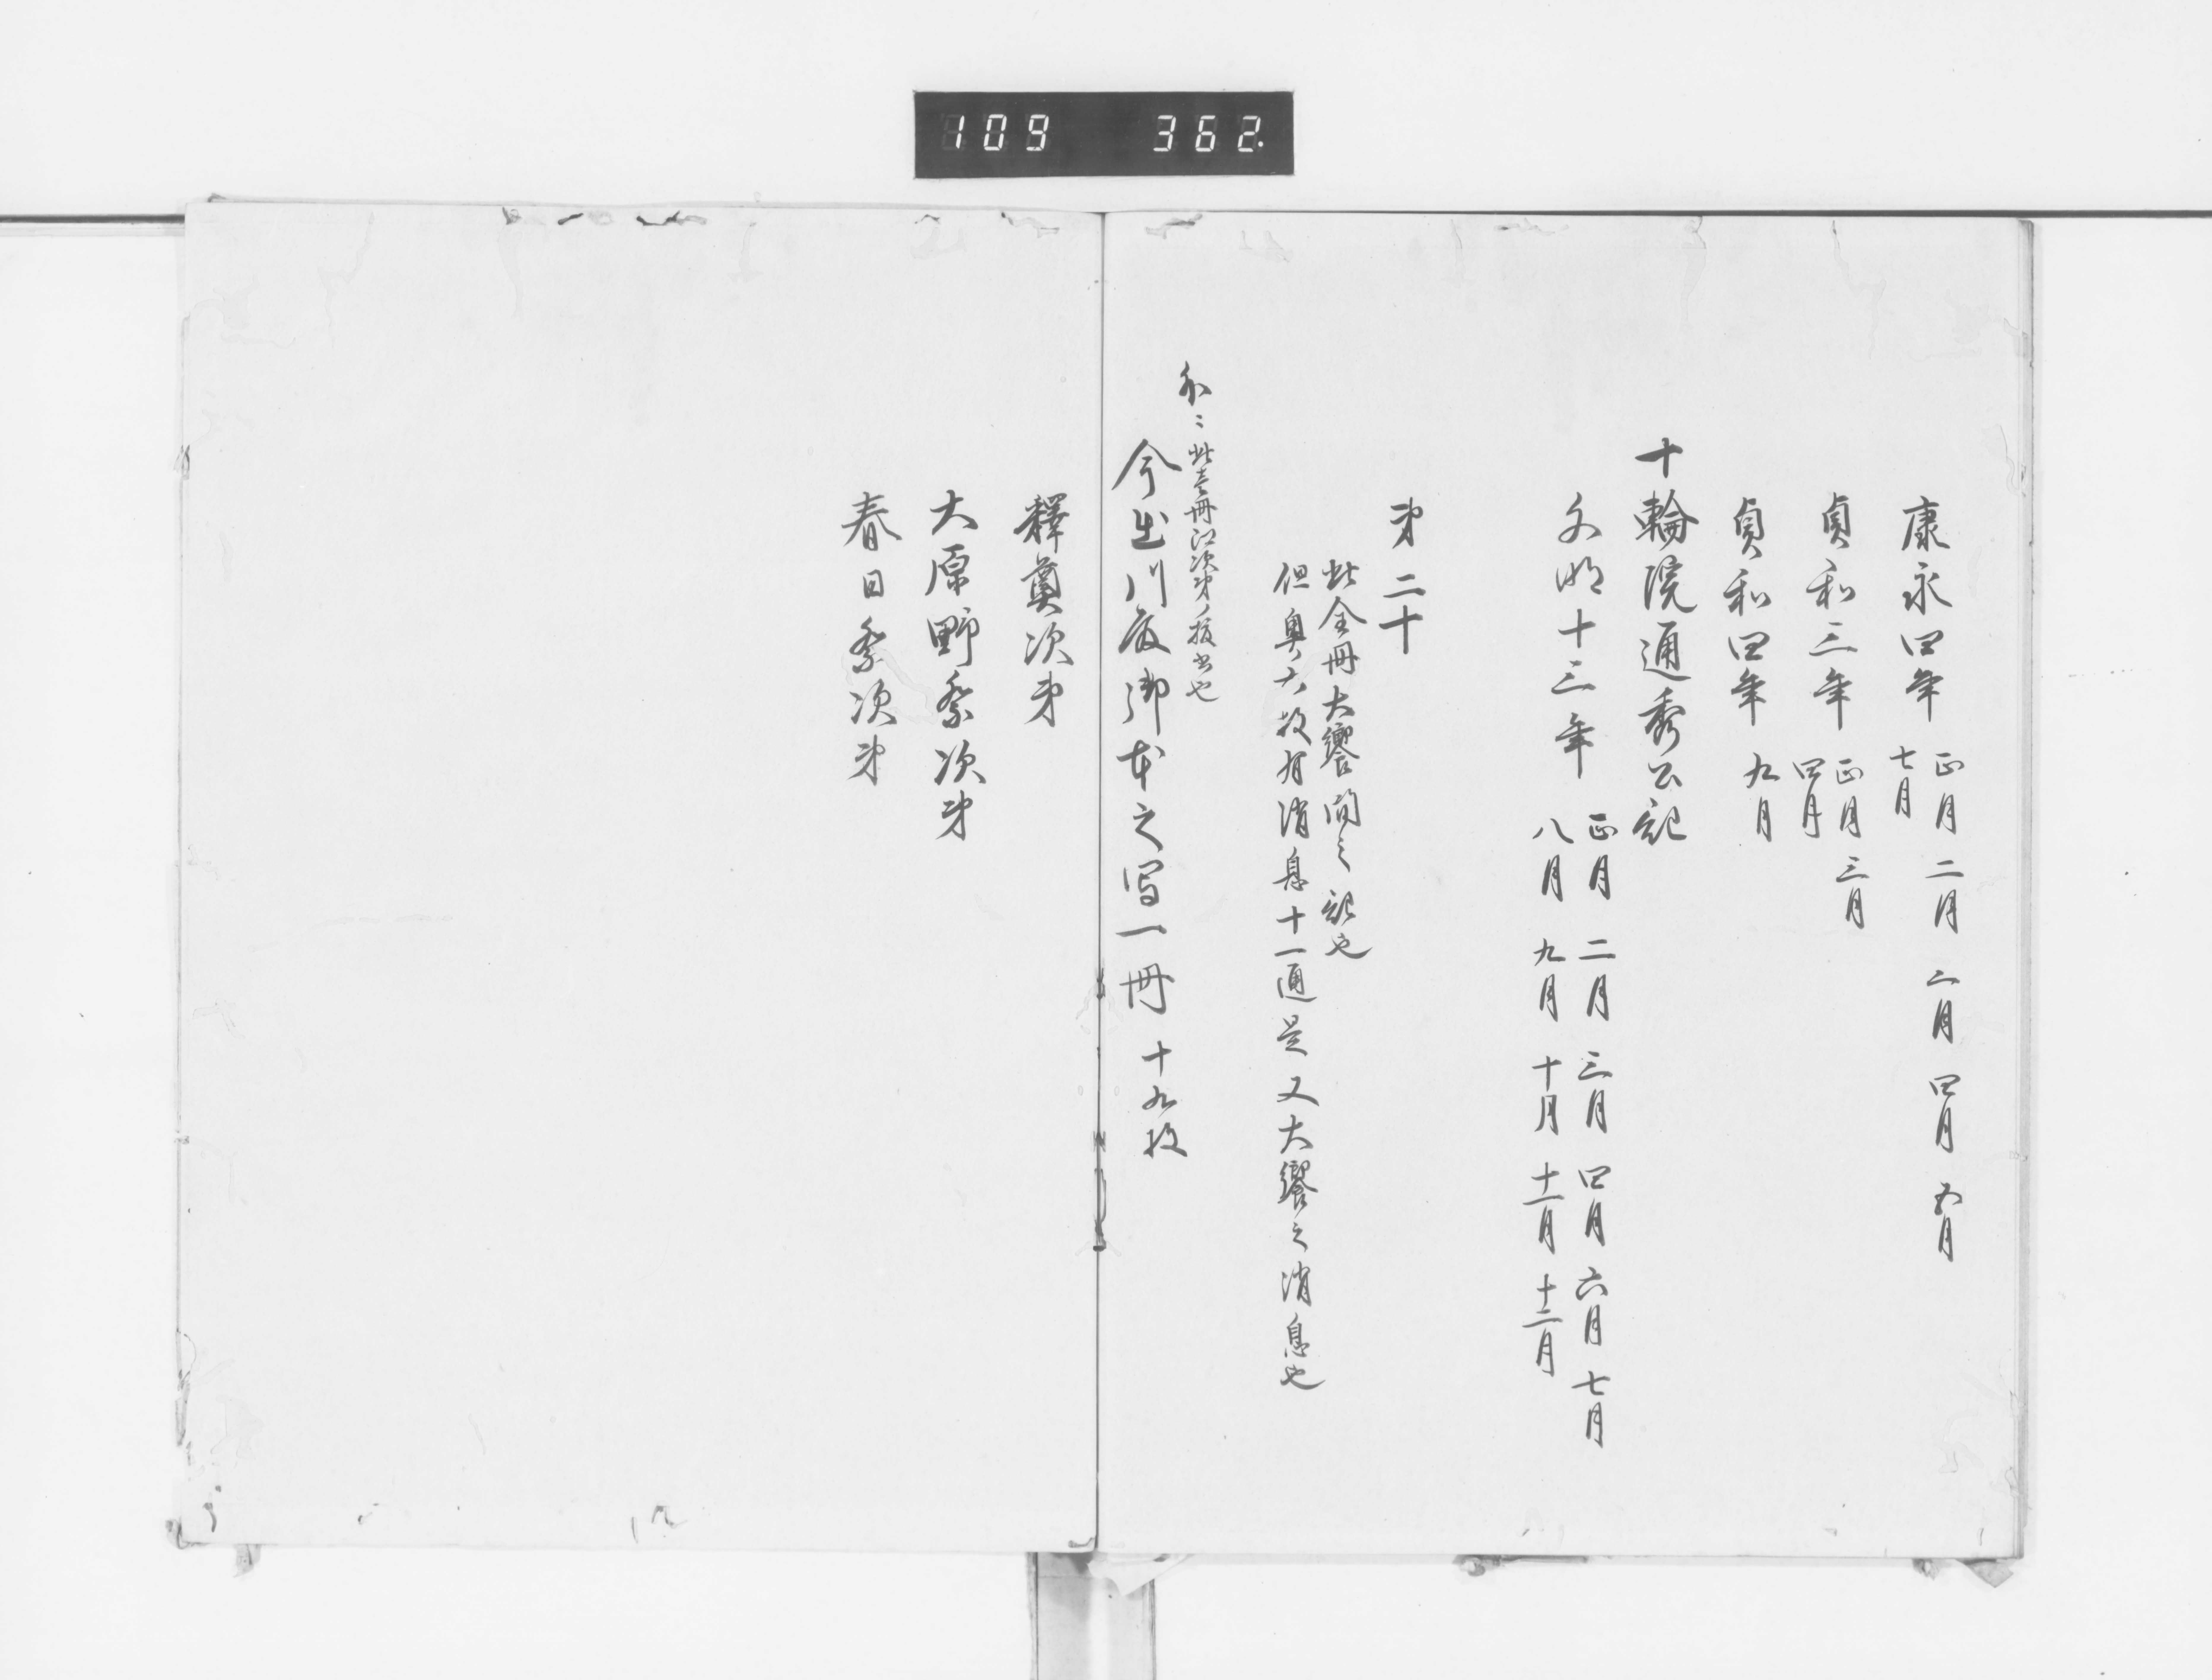 109 362.
康永四年 正月 二月 三月 四月 五月
七月
貞和三年 正月 三月
四月
貞和四年 九月
十輪院通秀公記
文明十三年 正月 二月 三月 四月 六月 七月
八月 九月 十月 十一月 十二月
第二十
此全冊大饗間之記也
但奥六枚有消息十一通是又大饗之消息也
此壱冊江次第ノ抜書也
今出川殿御本之写一冊 十九枚
釋奠次第
大原野祭次第
春日祭次第